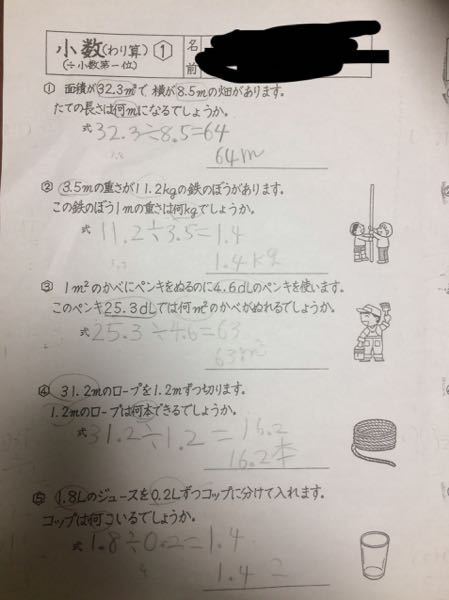 小数(わり算) ① 名前
(÷小数第一位)
① 面積が32.3m²で、横が8.5mの畑があります。
たての長さは何mになるでしょうか。
式 32.3÷8.5=64
64m
② 3.5mの重さが11.2kgの鉄のぼうがあります。
この鉄のぼう1mの重さは何kgでしょうか。
式 11.2÷3.5=1.4
1.4kg
③ 1m²のかべにペンキをぬるのに4.6dLのペンキを使います。
このペンキ25.3dLでは何m²のかべがぬれるでしょうか。
式 25.3÷4.6=63
63m²
④ 31.2mのロープを1.2mずつ切ります。
1.2mのロープは何本できるでしょうか。
式 31.2÷1.2=16.2
16.2本
⑤ 1.8Lのジュースを0.2Lずつコップに分けて入れます。
コップは何こいるでしょうか。
式 1.8÷0.2=1.4
1.4こ